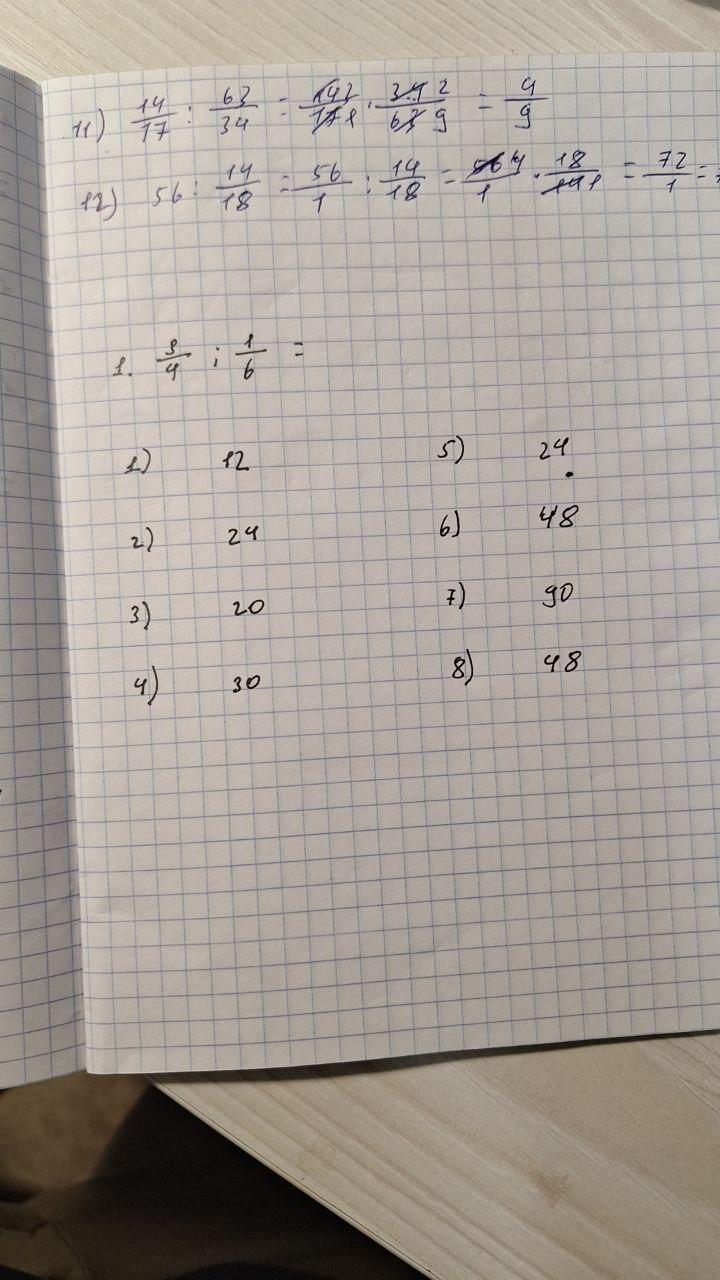 11) 14/17 : 63/34 = 14 2/17 1 · 34 2/63 9 = 4/9
12) 56 : 14/18 = 56/1 : 14/18 = 56 4/1 · 18/14 1 = 72/1 =
1. 3/4 ; 1/6 =
1) 12 5) 24
2) 24 6) 48
3) 20 7) 90
4) 30 8) 48